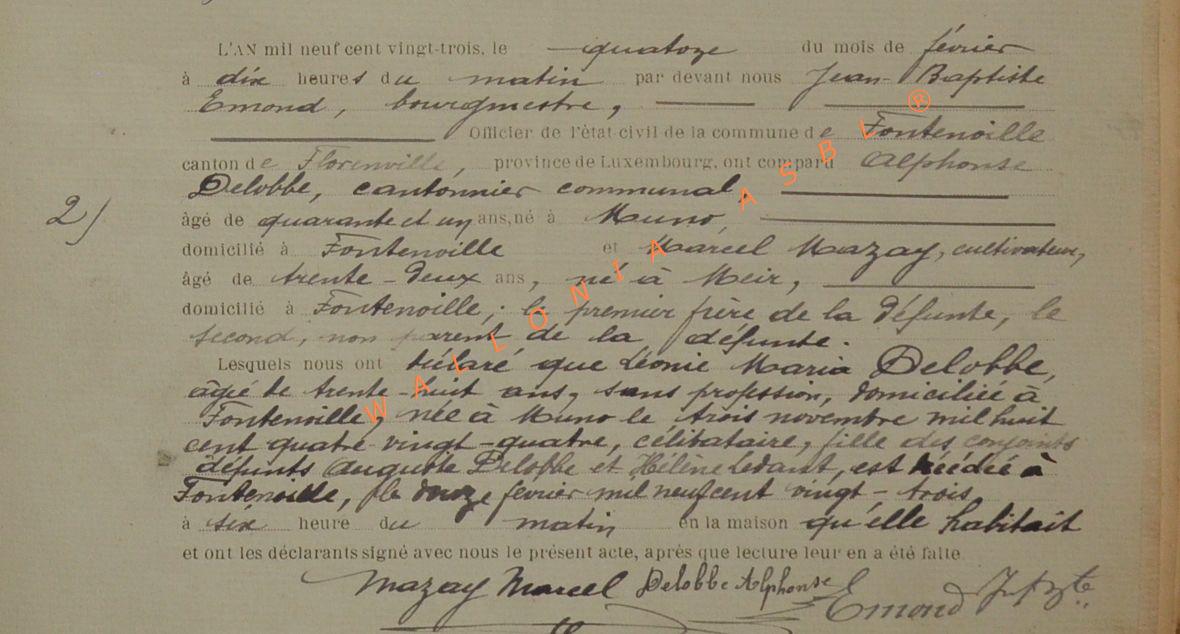 L'AN mil neuf cent vingt-trois, le quatoze du mois de février
à dix heures du matin par devant nous Jean-Baptiste
Emond, bourgmestre,
Officier de l'état civil de la commune de Fontenoille
canton de Florenville, province de Luxembourg, ont comparu Alphonse
Delobbe, cantonnier communal,
2)
âgé de quarante et un ans, né à Muno,
domicilié à Fontenoille et Marcel Mazay, cultivateur,
âgé de trente-deux ans, né à Meix,
domicilié à Fontenoille; le premier frère de la défunte, le
second, non parent de la défunte.
Lesquels nous ont déclaré que Léonie Maria Delobbe,
âgée de trente-huit ans, sans profession, domiciliée à
Fontenoille, née à Muno le trois novembre mil huit
cent quatre vingt-quatre, célibataire, fille des conjoints
défunts Auguste Delobbe et Hélène Ledant, est décédée à
Fontenoille, le douze février mil neuf cent vingt-trois
à six heure du matin en la maison qu'elle habitait
et ont les déclarants signé avec nous le présent acte, après que lecture leur en a été faite
Mazay Marcel Delobbe Alphonse Emond J. Bte
WALLONIA ASBL ®